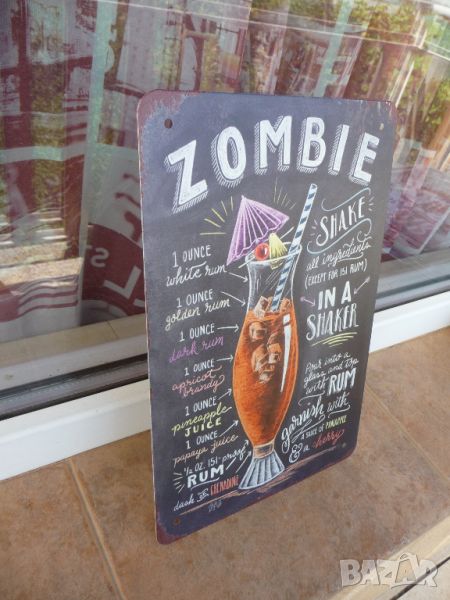 ZOMBIE
1 OUNCE
white rum
1 OUNCE
golden rum
1 OUNCE
dark rum
1 OUNCE
apricot
brandy
1 OUNCE
pineapple
JUICE
1 OUNCE
papaya juice
1/2 OZ. 151-proof
RUM
dash of GRENADINE
SHAKE
all ingredients
(EXCEPT FOR 151 RUM)
IN A
SHAKER
Pour into a
glass and top
with RUM
garnish with
A SLICE OF PINEAPPLE
& a cherry
bazar.bg